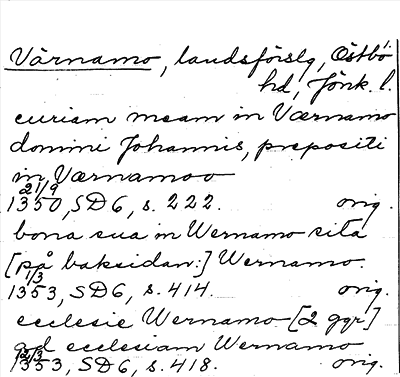 Värnamo, landsförslg, Östbo
hd, Jönk. l.
curiam meam in Værnamo
domini Johannis, prepositi
in Værnamoo
21/9
1350, SD6, s. 222. orig.
bona sua in Wernamo sita
[på baksidan:] Wernamo.
1/3
1353, SD6, s. 414. orig.
ecclesie Wernamo [2 ggr]
ad ecclesiam Wernamo
12/3
1353, SD6, s. 418. orig.